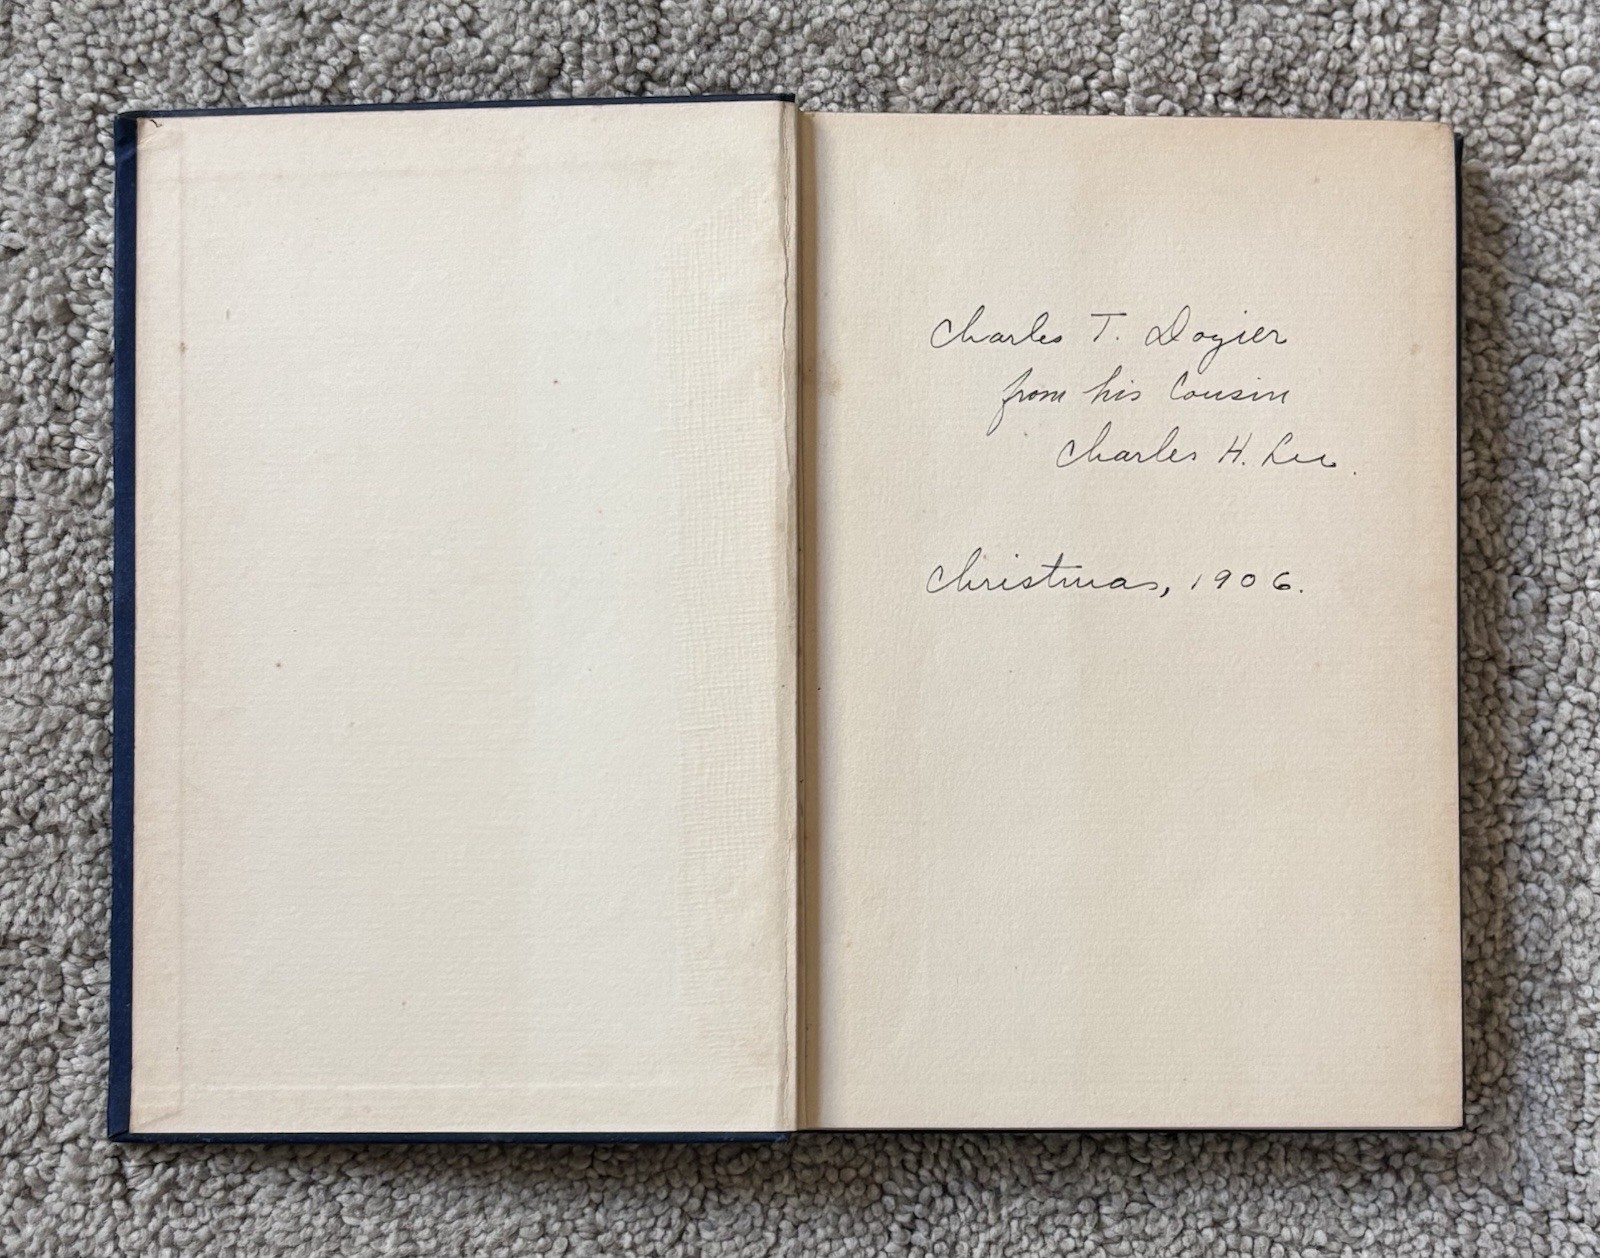 Charles T. Dozier
from his Cousin
Charles H. Lee.
Christmas, 1906.